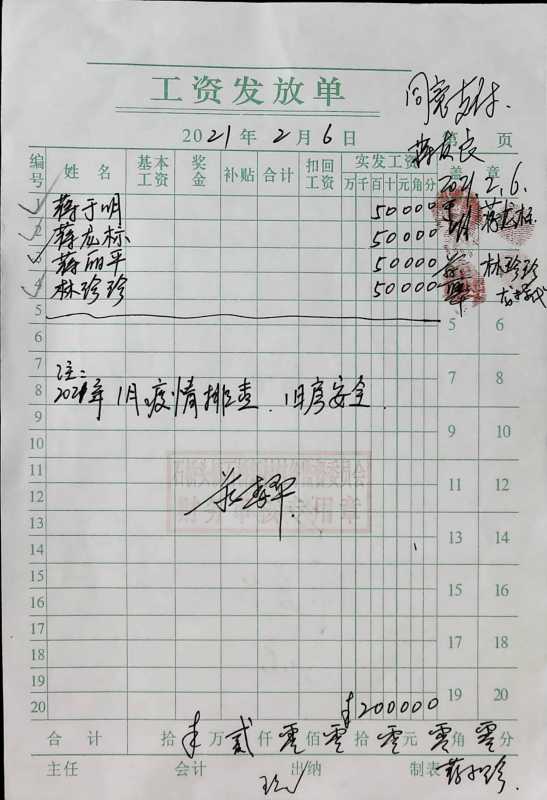 工资发放单
同意支付.
2021年2月6日
第 页
2021.2.6.
编号 姓名 基本工资 奖金 补贴 合计 扣回工资 实发工资 盖章
万 千 百 十 元 角 分
1 蒋于明 50000
2 蒋龙标 50000 蒋龙标
3 蒋丽平 50000
4 林珍珍 50000 林珍珍
5 5 6
6
7 注: 7 8
8 2021年1月疫情排查.旧房安全.
9 9 10
10
11 11 12
12 财务 专用章
13 13 14
14
15 15 16
16
17 17 18
18
19 19 20
20 ¥200000
合计 拾 万 贰 仟 零 佰 零 拾 零 元 零 角 零 分
主任 会计 出纳 制表